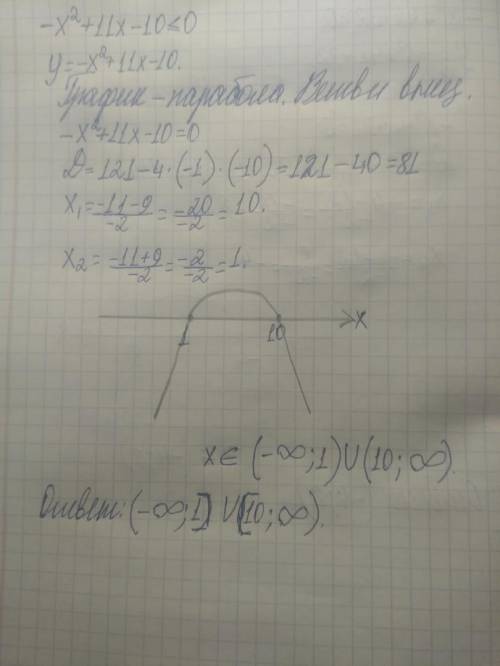 -x²+11x-10≤0
y=-x²+11x-10.
График - парабола. Ветви вниз.
-x²+11x-10=0
D=121-4·(-1)·(-10)=121-40=81
x₁=-11-9/-2=-20/-2=10.
x₂=-11+9/-2=-2/-2=1.
1 10 x
x∈(-∞;1)∪(10;∞).
Ответ:(-∞;1]∪[10;∞).